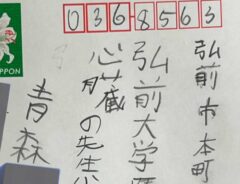 036-8563
弘前市本町
弘前大学
心臓の先生
青森
IPPON